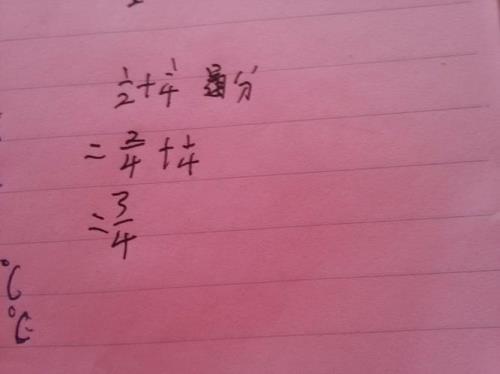 1/2 + 1/4 通分
= 2/4 + 1/4
= 3/4
°C
°C